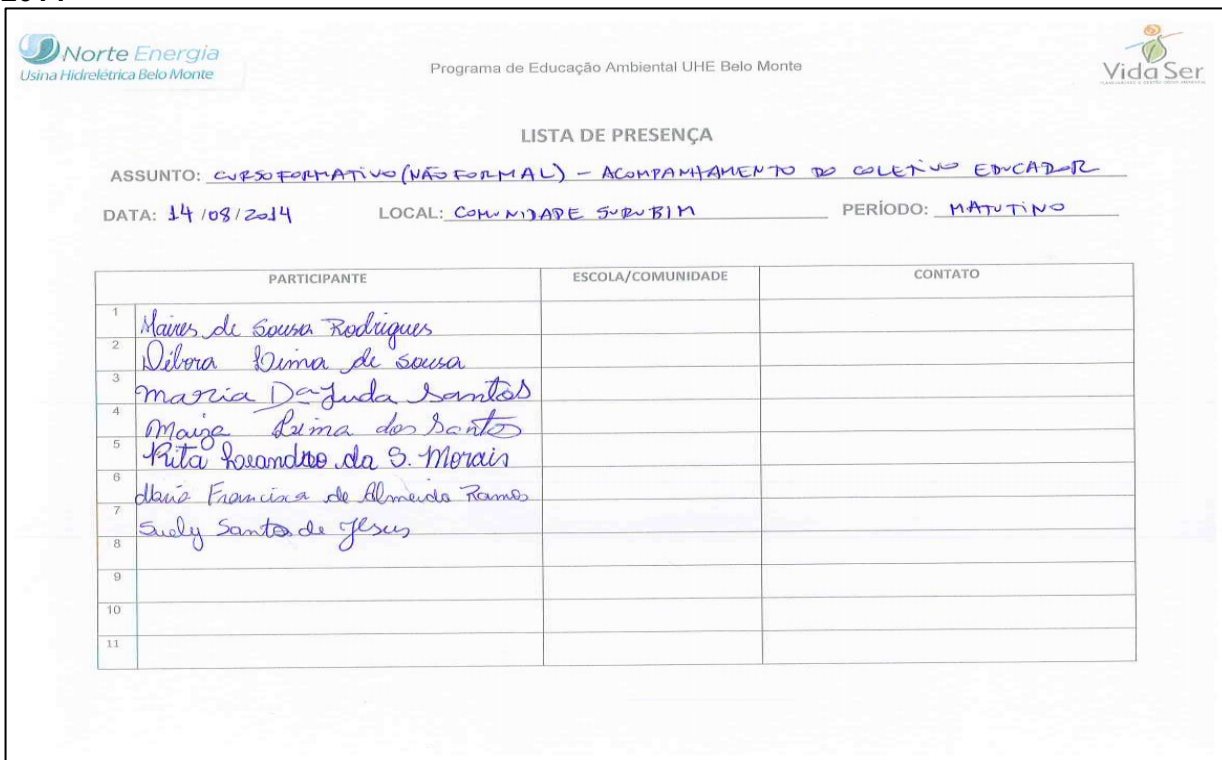 Norte Energia
Usina Hidrelétrica Belo Monte
Programa de Educação Ambiental UHE Belo Monte
Vida Ser
LISTA DE PRESENÇA
ASSUNTO: CURSO FORMATIVO (NÃO FORMAL) - ACOMPANHAMENTO DO COLETIVO EDUCADOR
DATA: 14/08/2014 LOCAL: COMUNIDADE SURUBIM PERÍODO: MATUTINO
PARTICIPANTE ESCOLA/COMUNIDADE CONTATO
1 de Sousa Rodrigues
2 Débora Lima de sousa
3 maria Dajuda Santos
4 Maiza Lima dos Santos
5 Rita Leandro da S. Morais
6 Maria Francisca de Almeida Ramos
7 Suely Santos de Jesus
8
9
10
11